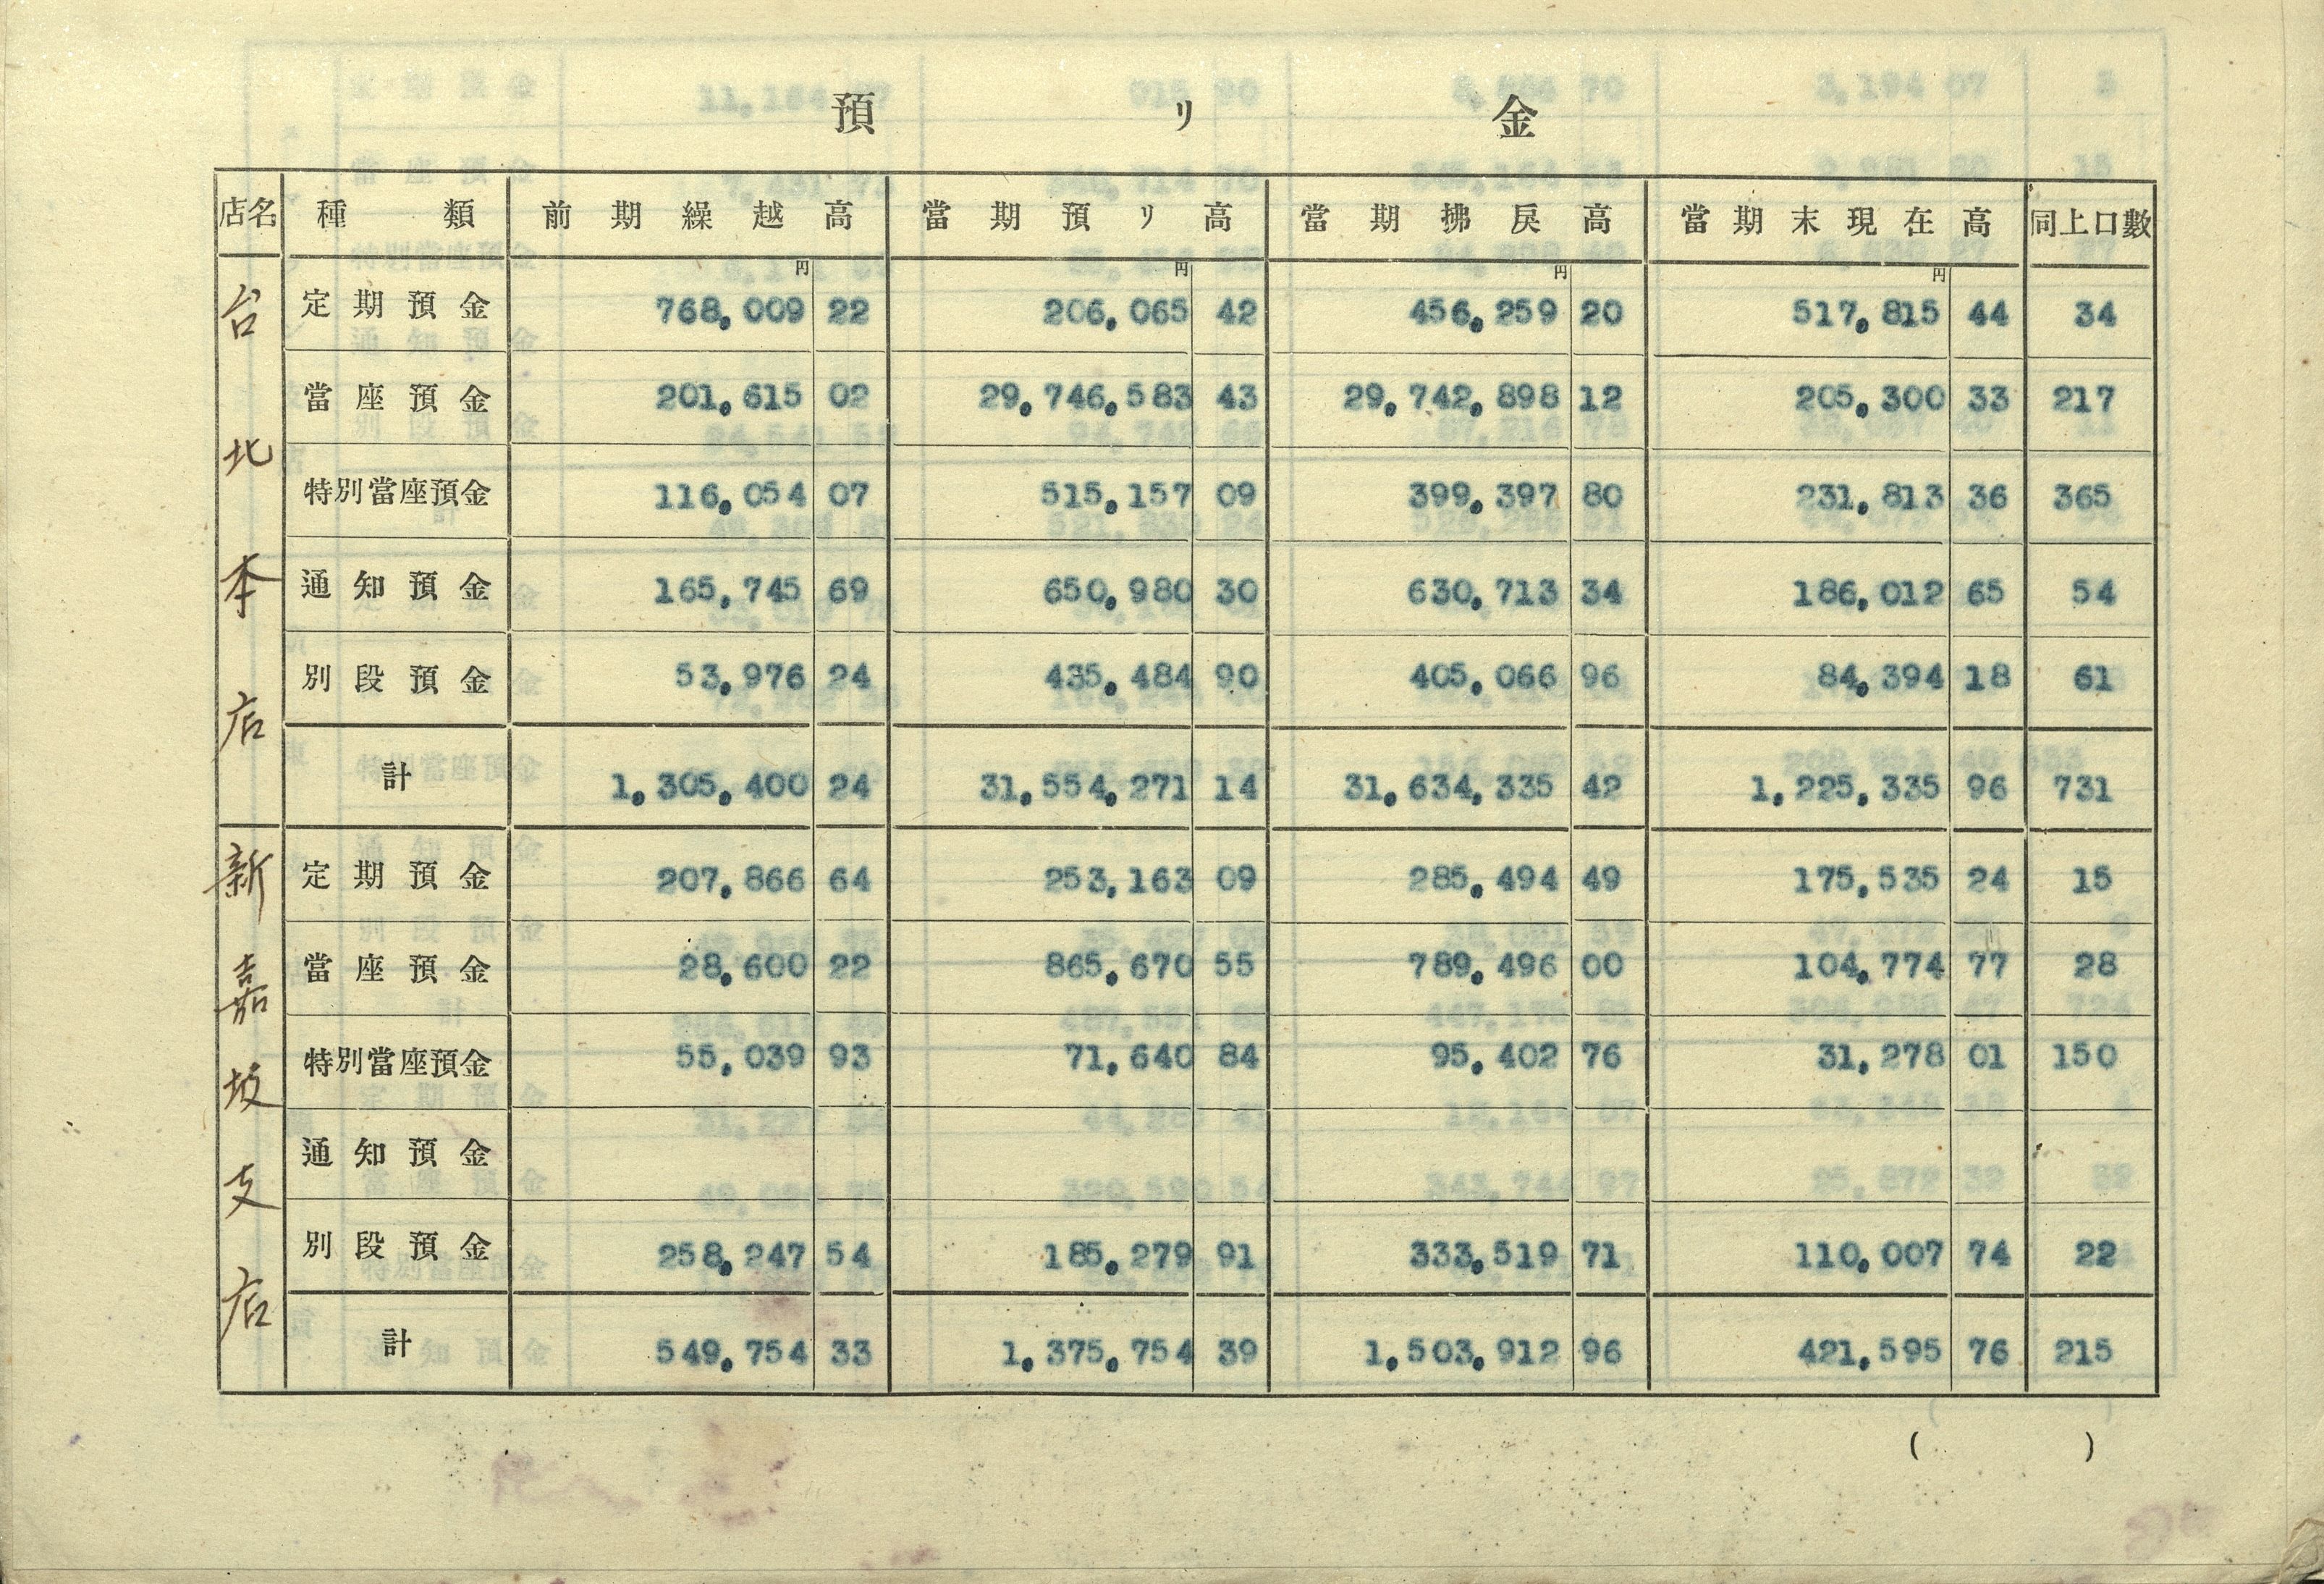 預リ金
店名 種類 前期繰越高 當期預リ高 當期拂戻高 當期末現在高 同上口數
円 円 円 円
台北本店
定期預金 768,009 22 206,065 42 456,259 20 517,815 44 34
當座預金 201,615 02 29,746,583 43 29,742,898 12 205,300 33 217
特別當座預金 116,054 07 515,157 09 399,397 80 231,813 36 365
通知預金 165,745 69 650,980 30 630,713 34 186,012 65 54
別段預金 53,976 24 435,484 90 405,066 96 84,394 18 61
計 1,305,400 24 31,554,271 14 31,634,335 42 1,225,335 96 731
新嘉坡支店
定期預金 207,866 64 253,163 09 285,494 49 175,535 24 15
當座預金 28,600 22 865,670 55 789,496 00 104,774 77 28
特別當座預金 55,039 93 71,640 84 95,402 76 31,278 01 150
通知預金
別段預金 258,247 54 185,279 91 333,519 71 110,007 74 22
計 549,754 33 1,375,754 39 1,503,912 96 421,595 76 215
( )